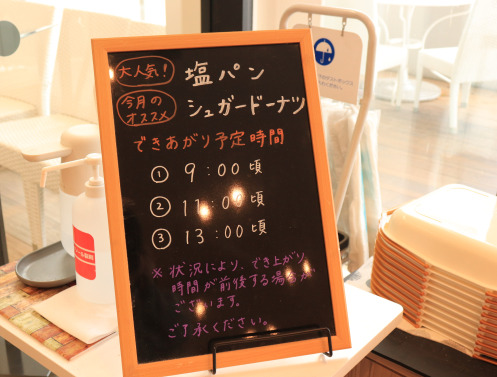 大人気！ 塩パン
今月の
オススメ シュガードーナツ
できあがり予定時間
① 9：00頃
② 11：00頃
③ 13：00頃
※ 状況により、でき上がり
時間が前後する場合が
ございます。
ご了承ください。